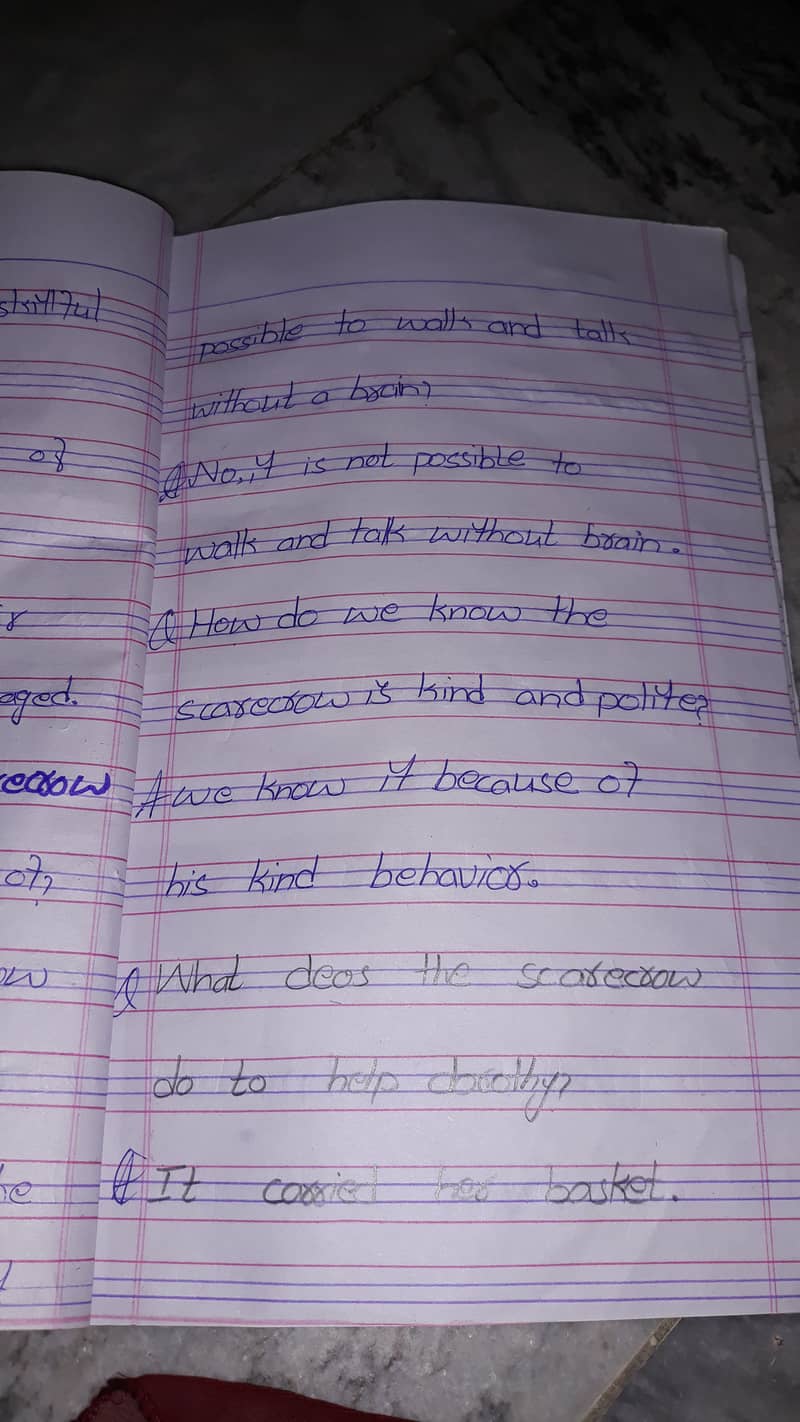 skillful
of
r
aged.
ecrow
of?
ow
he
possible to walk and talk
without a brain?
A No, it is not possible to
walk and talk without brain.
Q How do we know the
scarecrow is kind and polite?
A we know it because of
his kind behavior.
Q What deos the scarecrow
do to help dorothy?
A It carried her basket.